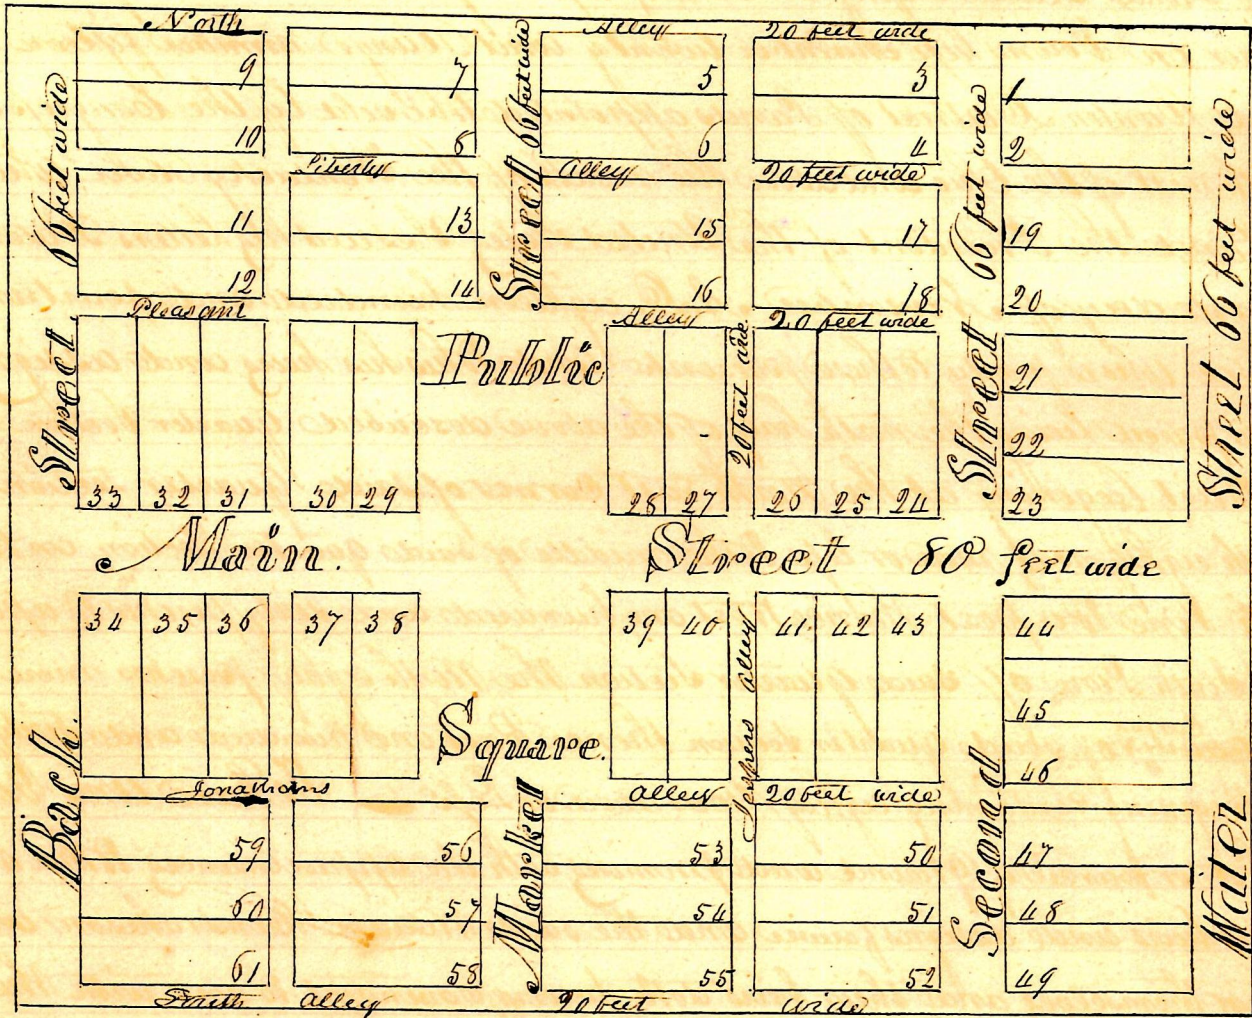 North Alley 20 feet wide
9 7 5 3 1
10 8 6 4 2
Liberty Alley 20 feet wide
11 13 15 17 19
12 14 16 18 20
Pleasant Alley 20 feet wide
Public
20 feet wide
21
22
33 32 31 30 29 28 27 26 25 24 23
Main. Street 80 feet wide
34 35 36 37 38 39 40 41 42 43 44
45
46
Square.
alley
Jonathans alley 20 feet wide
59 56 53 50 47
60 57 54 51 48
61 58 55 52 49
South alley 20 feet wide
Back. Street. 66 feet wide
Market Street 66 feet wide
Second Street 66 feet wide
Water Street 66 feet wide